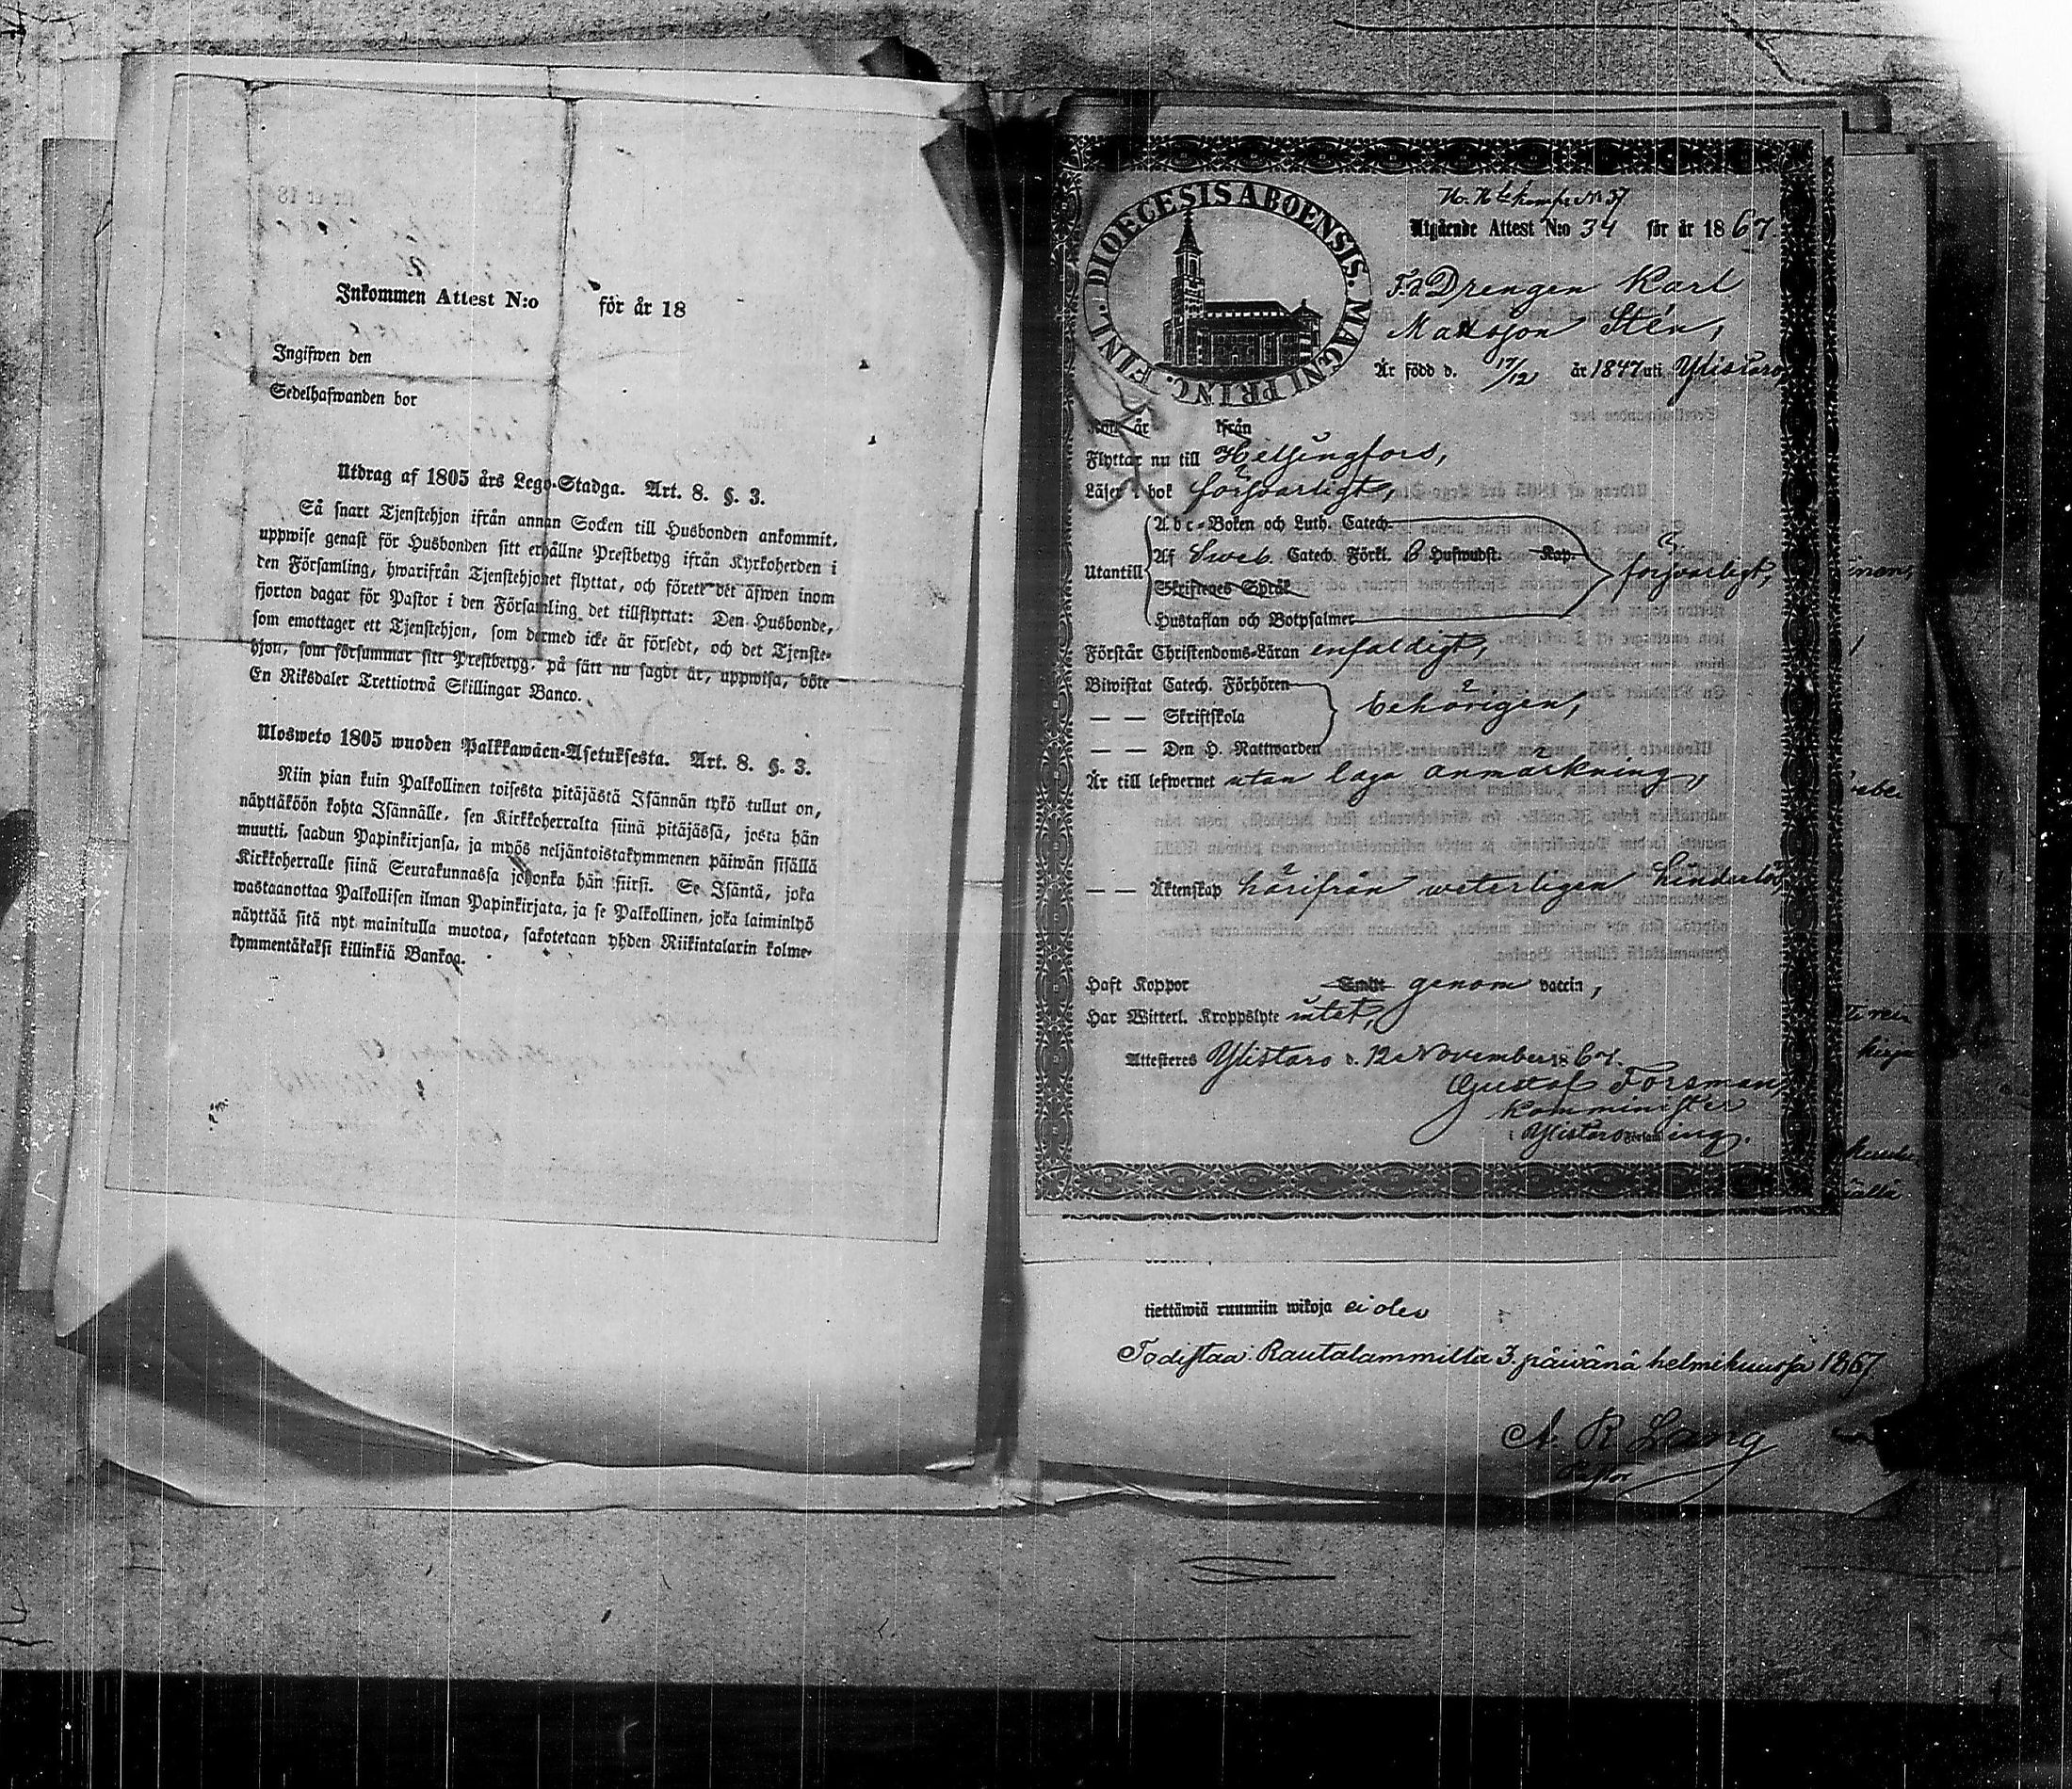 Inkommen Attest N:o för år 18
Ingifwen den
Sedelhafwanden bor
Utdrag af 1805 års Lego-Stadga. Art. 8. §. 3.
Så snart Tjenstehjon ifrån annan Socken till Husbonden ankommit,
uppwise genast för Husbonden sitt erhållne Prestbetyg ifrån Kyrkoherden i
den Församling, hwarifrån Tjenstehjonet flyttat, och förete det äfwen inom
fjorton dagar för Pastor i den Församling det tillflyttat: Den Husbonde,
som emottager ett Tjenstehjon, som dermed icke är försedt, och det Tjenste-
hjon, som försummar sitt Prestbetyg, på sätt nu sagdt är, uppwisa, böte
En Riksdaler Trettiotwå Skillingar Banco.
Ulosweto 1805 wuoden Palkkawäen-Asetuksesta. Art. 8. §. 3.
Niin pian kuin Palkollinen toisesta pitäjästä Isännän tykö tullut on,
näyttäköön kohta Isännälle, sen Kirkkoherralta siinä pitäjässä, josta hän
muutti, saadun Papinkirjansa, ja myös neljäntoistakymmenen päiwän sisällä
Kirkkoherralle siinä Seurakunnassa johonka hän siirsi. Se Isäntä, joka
wastaanottaa Palkollisen ilman Papinkirjata, ja se Palkollinen, joka laiminlyö
näyttää sitä nyt mainitulla muotoa, sakotetaan yhden Riikintalarin kolme-
kymmentäkaksi killinkiä Bankoa.
DIOECESIS ABOENSIS. MAGNI PRINC. FINL.
N:o 37
Utgående Attest N:o 34 för år 1867.
F.d Drengen Karl
Mattsson Stén,
Är född d. 17/12 år 1847 uti Ylistaro,
Kom år ifrån
Flyttar nu till Helsingfors,
Läser i bok försvarligt,
Utantill
Abc-Boken och Luth. Catech.
Af Sweb. Catech. Förkl. 6 Hufwudst. Kap.
Skriftenes Språk
Hustaflan och Botpsalmer
försvarligt,
Förstår Christendoms-Läran enfaldigt,
Biwistat Catech. Förhören
— — Skriftskola
— — Den H. Nattwarden
behörigen,
Är till lefwernet utan laga anmärkning,
— — Äktenskap härifrån weterligen hinderlös,
Haft Koppor Smitt genom vaccin,
Har Witterl. Kroppslyte intet,
Attesteres Ylistaro d. 12 November 1867.
Gustaf Forsman,
Komminister
i Ylistaro Församling.
tiettäwiä ruumiin wikoja ei ole
Todistaa: Rautalammilla 3. päivänä helmikuussa 1867
A. R. Lang
Pastor